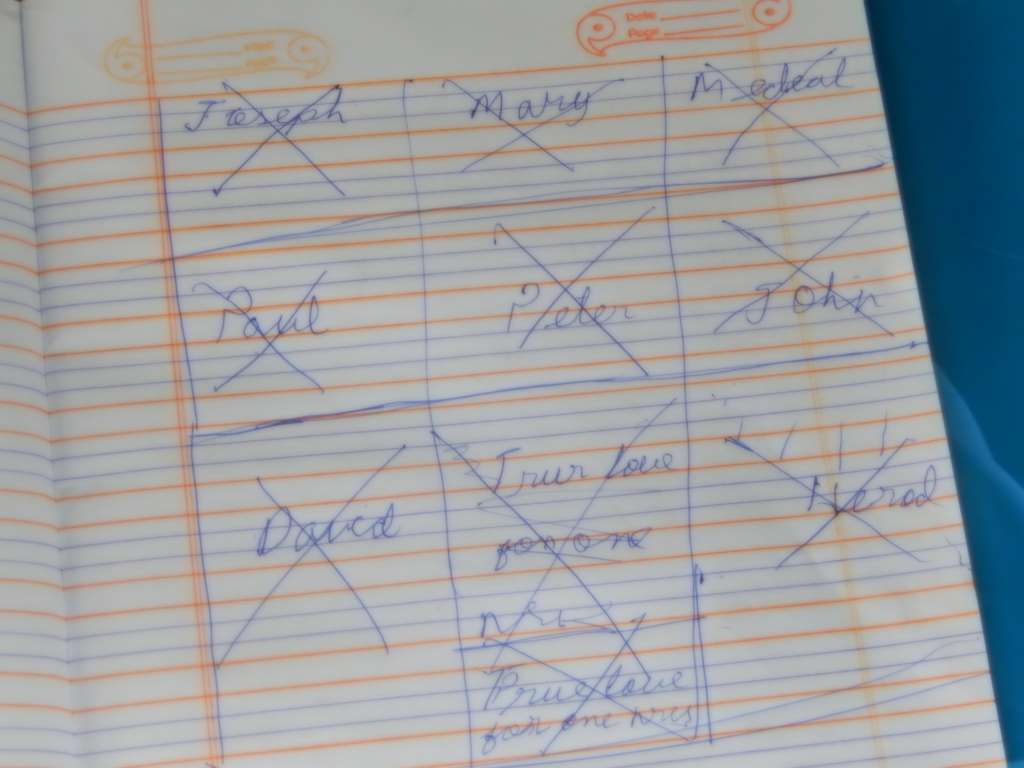 Date
Page
Joseph
Mary
Paul
Peter
John
David
True love
for one
Herod
True love
for one